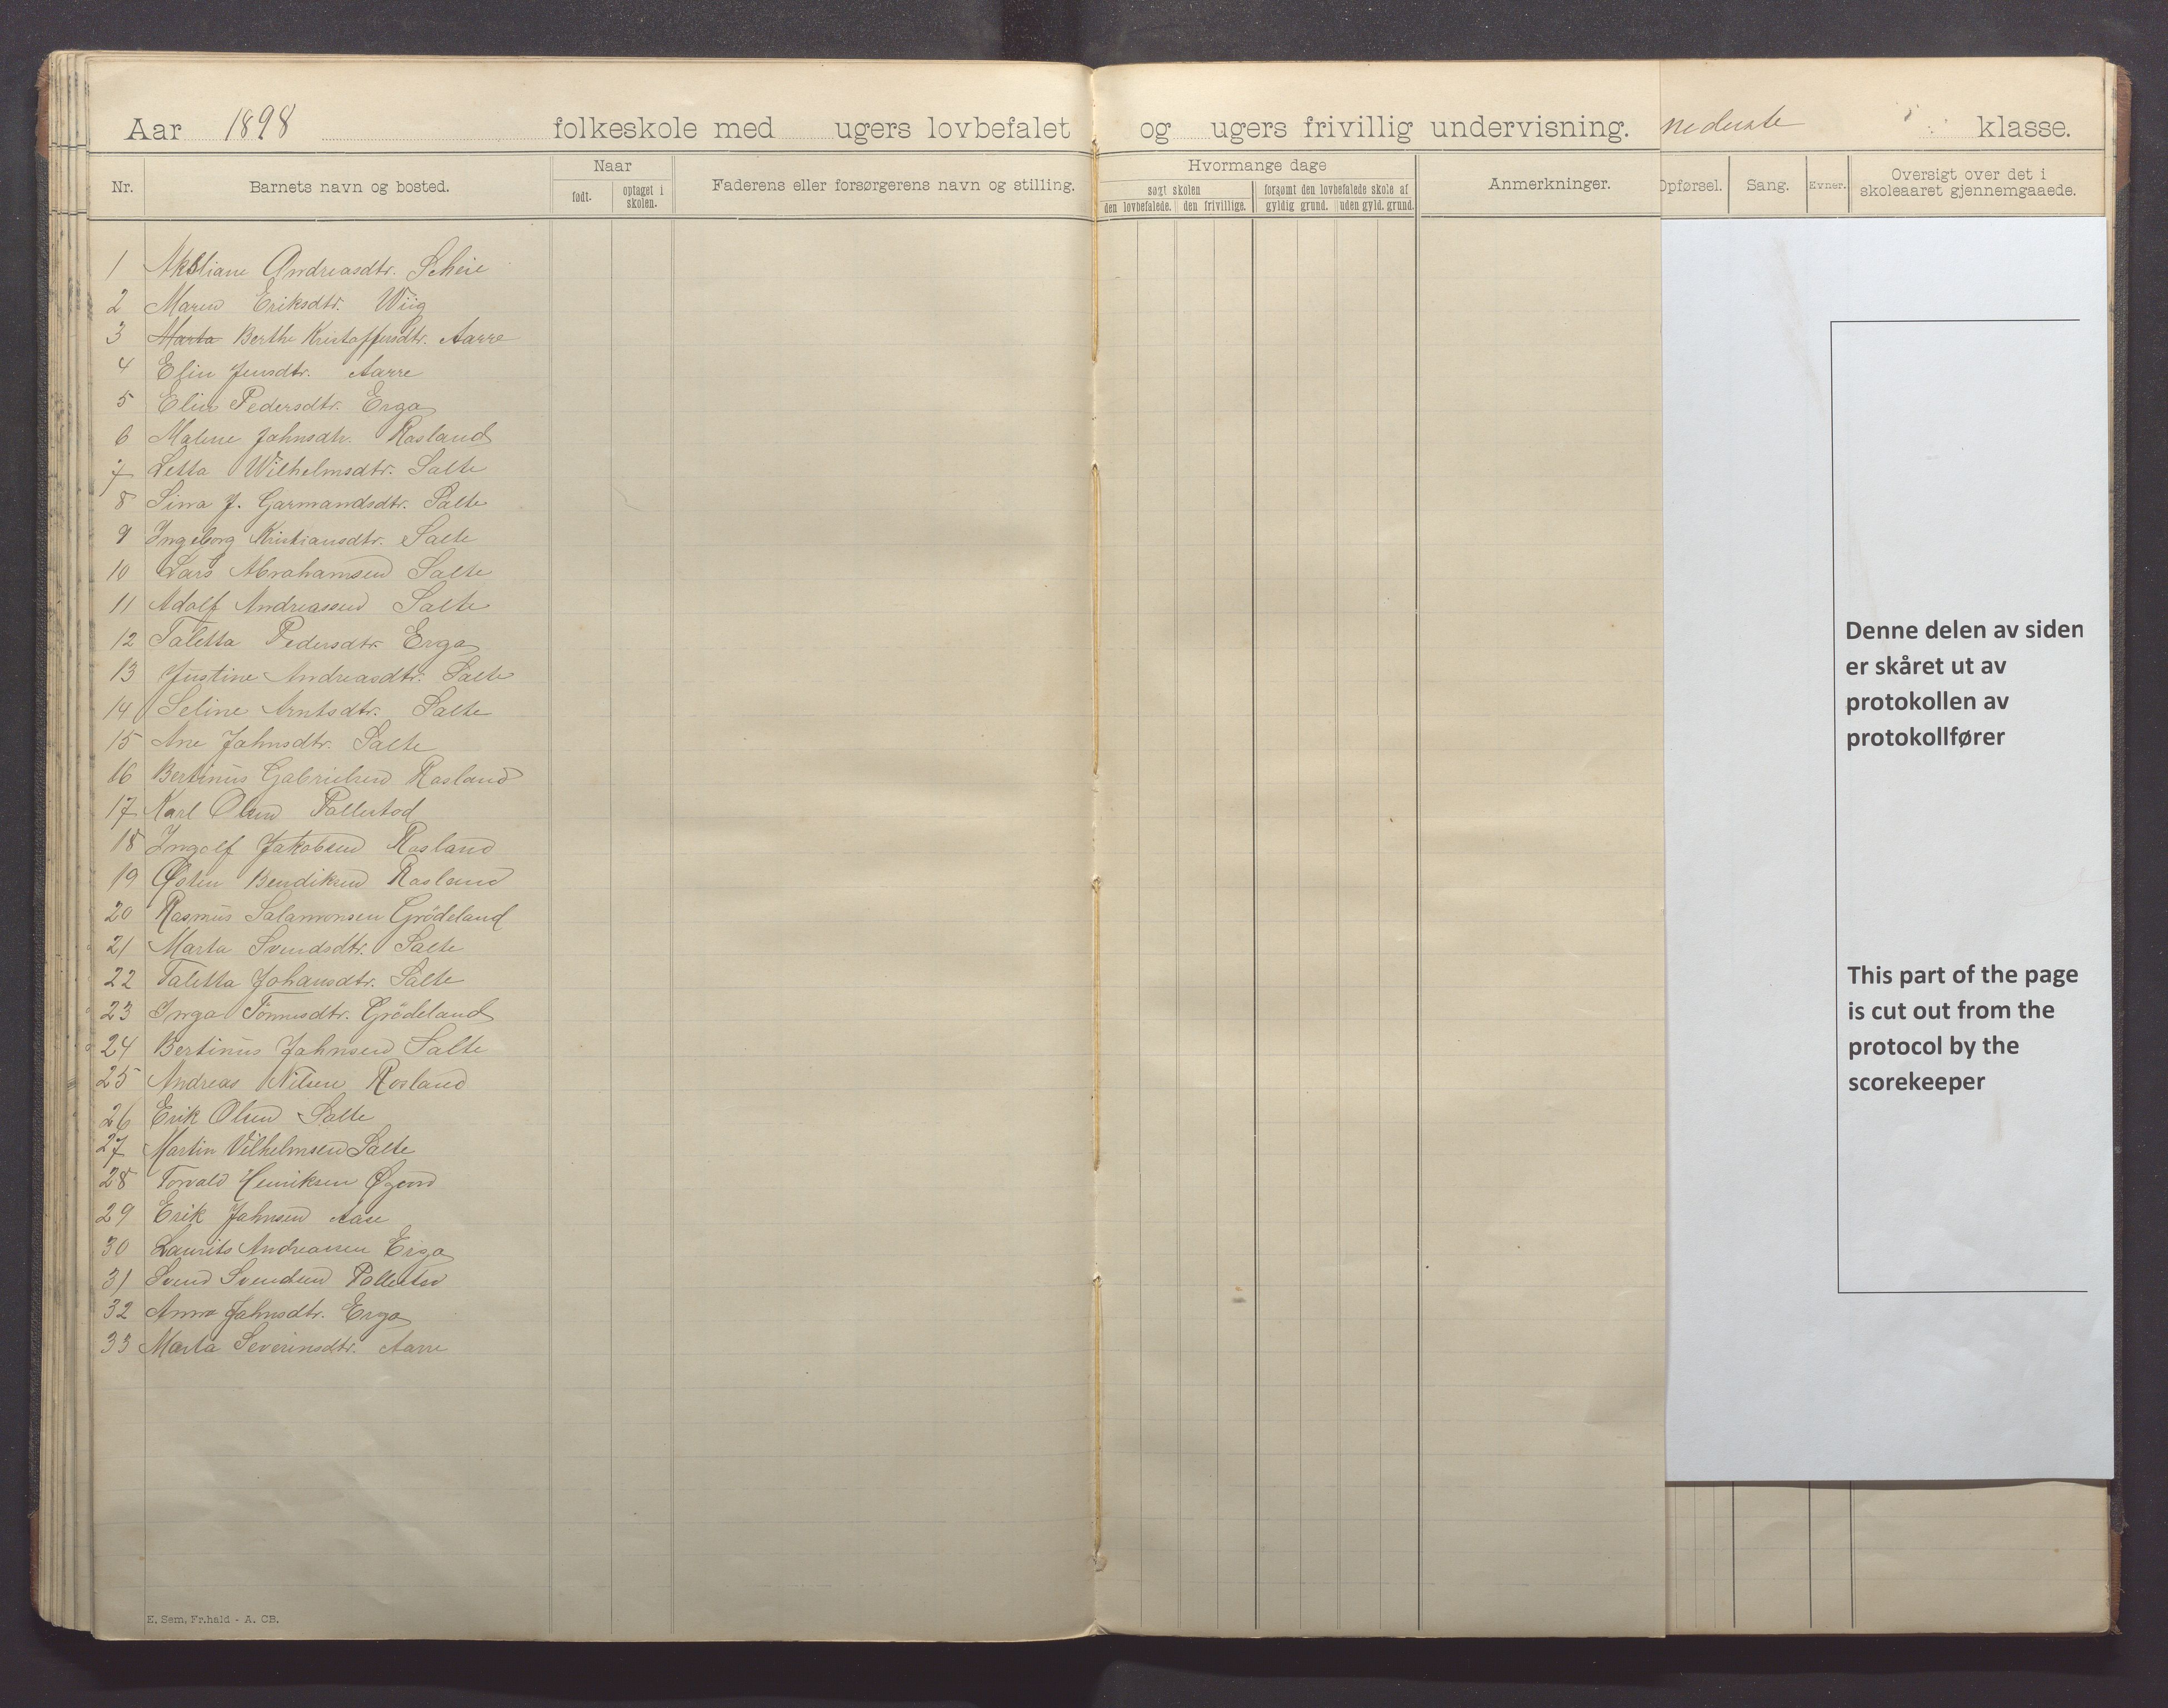 Aar 1898 folkeskole med ugers lovbefalet og ugers frivillig undervisning. nederste klasse.
Nr. Barnets navn og bosted. Naar født. optaget i skolen. Faderens eller forsørgerens navn og stilling. Hvormange dage søgt skolen den lovbefalede. den frivillige. forsømt den lovbefalede skole af gyldig grund. uden gyld. grund. Anmerkninger. Opførsel. Sang. Evner. Oversigt over det i skoleaaret gjennemgaaede.
1 Andreasdtr. Scheie
2 Maren Eriksdtr. Wiig
3 Marta Berthe Kristoffersdtr. Aarre
4 Elin Jensdtr. Aarre
5 Elin Pedersdtr. Erga
6 Malene Jahnsdtr. Rosland
7 Letta Wilhelmsdtr. Salte
8 Sina J. Garmandsdtr. Salte
9 Ingeborg Kristiansdtr. Salte
10 Lars Abrahamsen Salte
11 Adolf Andreassen Salte
12 Taletta Pedersdtr. Erga
13 Justine Andreasdtr. Salte
14 Seline Arntsdtr. Salte
15 Ane Jahnsdtr. Salte
16 Bertinus Gabrielsen Rosland
17 Karl Olsen Pollestad
18 Ingolf Jakobsen Rosland
19 Østen Bendiksen Rosland
20 Rasmus Salamonsen Grödeland
21 Marta Svendsdtr. Salte
22 Taletta Johansdtr. Salte
23 Inga Tönnesdtr. Grödeland
24 Bertinus Jahnsen Salte
25 Andreas Nilsen Rosland
26 Erik Olsen Salte
27 Martin Vilhelmsen Salte
28 Torvald Henriksen
29 Erik Jahnsen
30 Laurits Andreassen Erga
31 Svend Svendsen
32 Anna Jahnsdtr. Erga
33 Marta Severinsdtr. Aarre
E. Sem, Fr.hald - A. CB.
Denne delen av siden
er skåret ut av
protokollen av
protokollfører
This part of the page
is cut out from the
protocol by the
scorekeeper